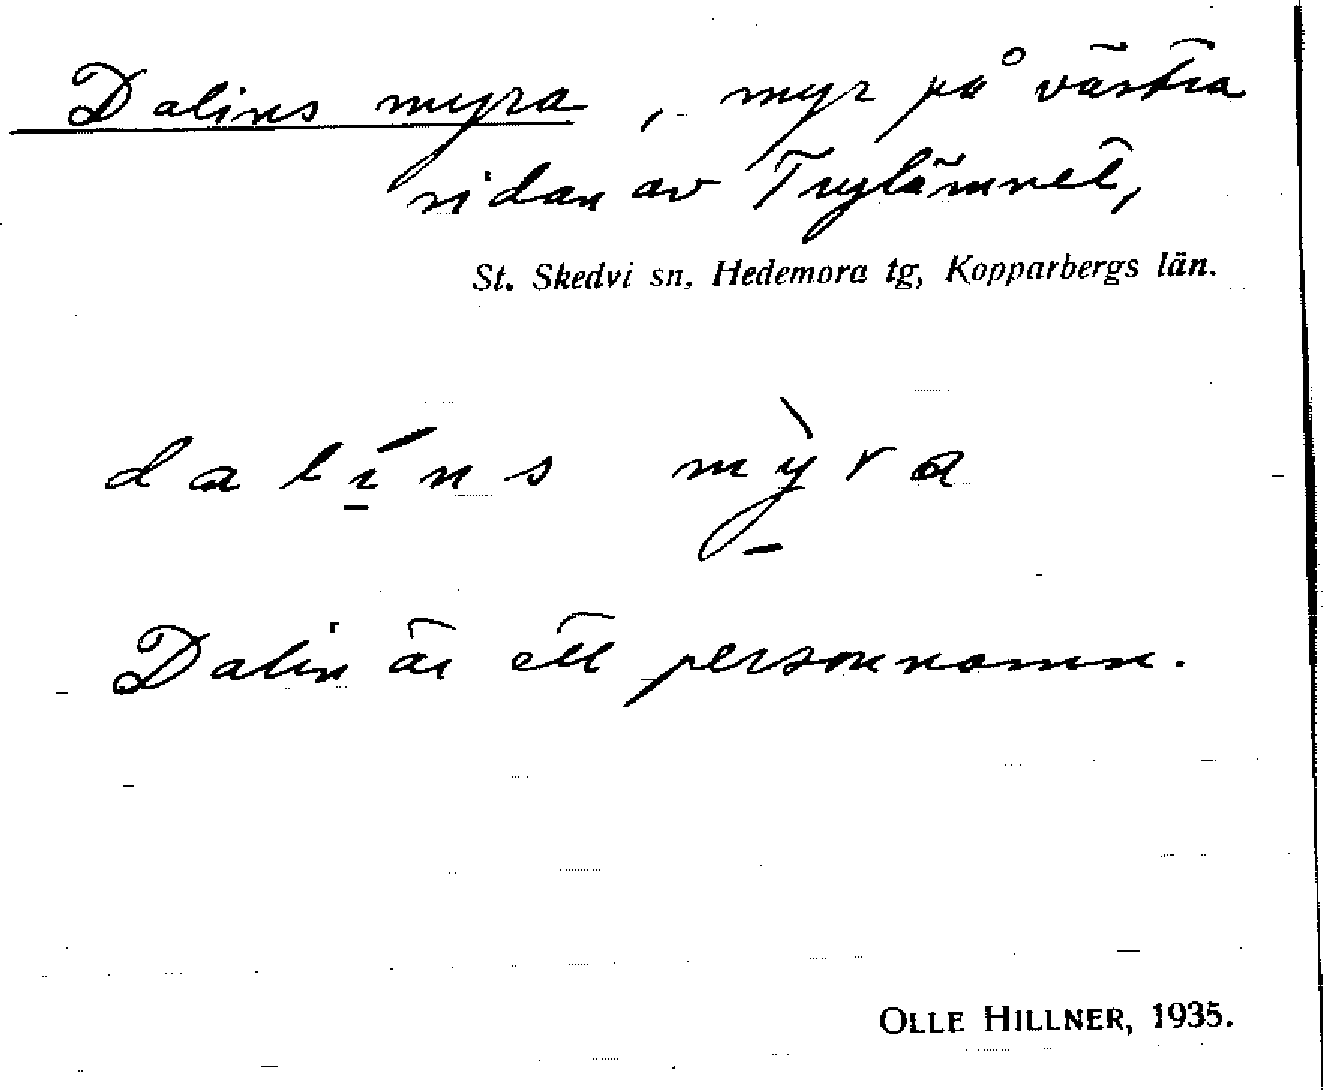 Dalins myra, myr på västra
sidan av Trylämnet,
St. Skedvi sn, Hedemora tg, Kopparbergs län.
dalí̱ns mỳ̱ra
Dalin är ett personnamn.
OLLE HILLNER, 1935.